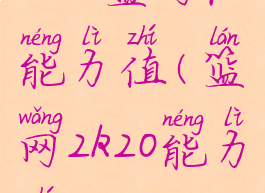 néng lì zhí lán
能力值(篮
wǎng néng lì
网2k20能力